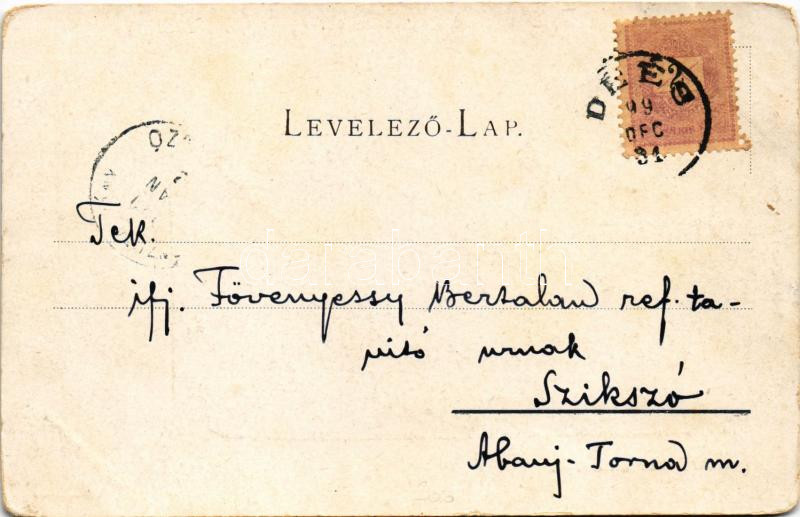 DEÉS
99
DEC
31
LEVELEZŐ-LAP.
Tek.
ifj. Fövenyessy Bertalan ref. ta-
nitó urnak
Szikszó
Abauj-Torna m.